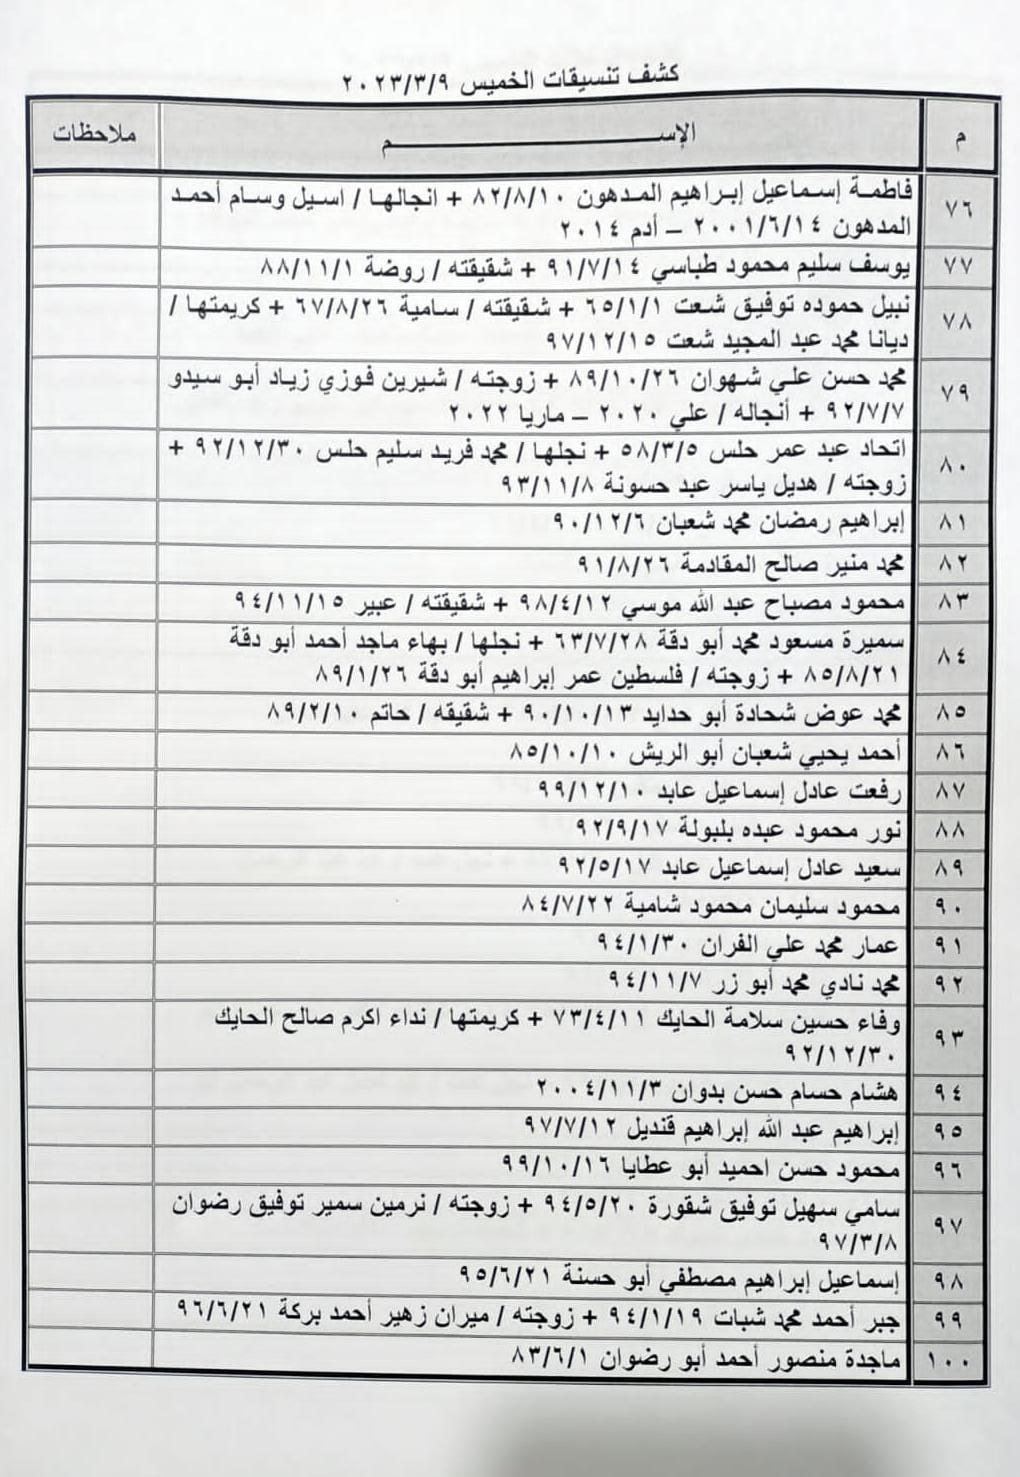 كشف تنسيقات الخميس ٢٠٢٣/٣/٩
م الإســــــــم ملاحظات
٧٦ فاطمة إسماعيل إبراهيم المدهون ٨٢/٨/١٠ + انجالها / اسيل وسام أحمد
المدهون ٢٠٠١/٦/١٤ – أدم ٢٠١٤
٧٧ يوسف سليم محمود طباسي ٩١/٧/١٤ + شقيقته / روضة ٨٨/١١/١
٧٨ نبيل حموده توفيق شعت ٦٥/١/١ + شقيقته / سامية ٦٧/٨/٢٦ + كريمتها /
ديانا محمد عبد المجيد شعت ٩٧/١٢/١٥
٧٩ محمد حسن علي شهوان ٨٩/١٠/٢٦ + زوجته / شيرين فوزي زياد أبو سيدو
٩٢/٧/٧ + أنجاله / علي ٢٠٢٠ – ماريا ٢٠٢٢
٨٠ اتحاد عبد عمر حلس ٥٨/٣/٥ + نجلها / محمد فريد سليم حلس ٩٢/١٢/٣٠ +
زوجته / هديل ياسر عبد حسونة ٩٣/١١/٨
٨١ إبراهيم رمضان محمد شعبان ٩٠/١٢/٦
٨٢ محمد منير صالح المقادمة ٩١/٨/٢٦
٨٣ محمود مصباح عبد الله موسي ٩٨/٤/١٢ + شقيقته / عبير ٩٤/١١/١٥
٨٤ سميرة مسعود محمد أبو دقة ٦٣/٧/٢٨ + نجلها / بهاء ماجد أحمد أبو دقة
٨٥/٨/٢١ + زوجته / فلسطين عمر إبراهيم أبو دقة ٨٩/١/٢٦
٨٥ محمد عوض شحادة أبو حدايد ٩٠/١٠/١٣ + شقيقه / حاتم ٨٩/٢/١٠
٨٦ أحمد يحيي شعبان أبو الريش ٨٥/١٠/١٠
٨٧ رفعت عادل إسماعيل عابد ٩٩/١٢/١٠
٨٨ نور محمود عبده بلبولة ٩٢/٩/١٧
٨٩ سعيد عادل إسماعيل عابد ٩٢/٥/١٧
٩٠ محمود سليمان محمود شامية ٨٤/٧/٢٢
٩١ عمار محمد علي الفران ٩٤/١/٣٠
٩٢ محمد نادي محمد أبو زر ٩٤/١١/٧
٩٣ وفاء حسين سلامة الحايك ٧٣/٤/١١ + كريمتها / نداء اكرم صالح الحايك
٩٢/١٢/٣٠
٩٤ هشام حسام حسن بدوان ٢٠٠٤/١١/٣
٩٥ إبراهيم عبد الله إبراهيم قنديل ٩٧/٧/١٢
٩٦ محمود حسن احميد أبو عطايا ٩٩/١٠/١٦
٩٧ سامي سهيل توفيق شقورة ٩٤/٥/٢٠ + زوجته / نرمين سمير توفيق رضوان
٩٧/٣/٨
٩٨ إسماعيل إبراهيم مصطفي أبو حسنة ٩٥/٦/٢١
٩٩ جبر أحمد محمد شبات ٩٤/١/١٩ + زوجته / ميران زهير أحمد بركة ٩٦/٦/٢١
١٠٠ ماجدة منصور أحمد أبو رضوان ٨٣/٦/١